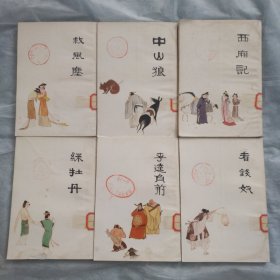 救風塵
中山狼
西廂記
綠牡丹
李逵負荊
看錢奴